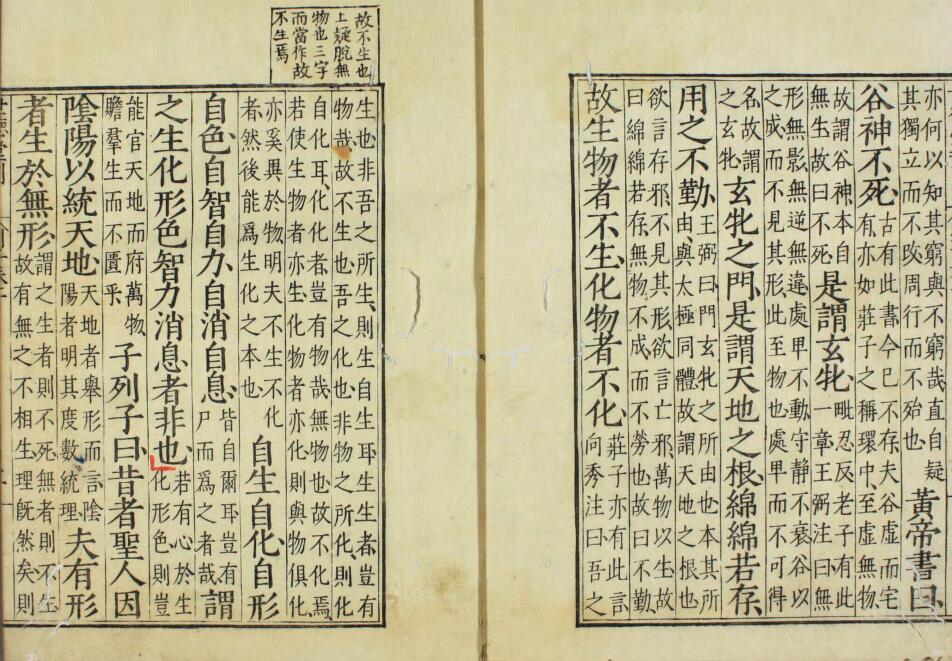 亦何以知其窮與不窮哉直自疑
其獨立而不改周行而不殆也
黃帝書曰
谷神不死
古有此書今已不存夫谷虛而宅
有亦如莊子之稱環中至虛無物
故謂谷神本自
無生故曰不死
是謂玄牝
毗忍反老子有此
一章王弼注曰無
形無影無逆無違處卑不動守靜不衰谷以
之成而不見其形此至物也處卑而不可得
名故謂
之玄牝
玄牝之門是謂天地之根綿綿若存
用之不勤
王弼曰門玄牝之所由也本其所
由與太極同體故謂天地之根也
欲言存邪不見其形欲言亡邪萬物以生故
曰綿綿若存無物不成而不勞也故曰不勤
故生物者不生化物者不化
莊子亦有此言
向秀注曰吾之
故不生也
上疑脫無
物也三字
而當作故
不生焉
生也非吾之所生則生自生耳生生者豈有
物哉故不生也吾之化也非物之所化則化
自化耳化化者豈有物哉無物也故不化焉
若使生物者亦生化物者亦化則與物俱化
亦奚異於物明夫不生不化
者然後能爲生化之本也
自生自化自形
自色自智自力自消自息
皆自爾耳豈有
尸而爲之者哉
謂
之生化形色智力消息者非也
若有心於生
化形色則豈
能官天地而府萬物
贍羣生而不匱乎
子列子曰昔者聖人因
陰陽以統天地
天地者舉形而言陰
陽者明其度數統理
夫有形
者生於無形
謂之生者則不死無者則不生
故有無之不相生理旣然矣則